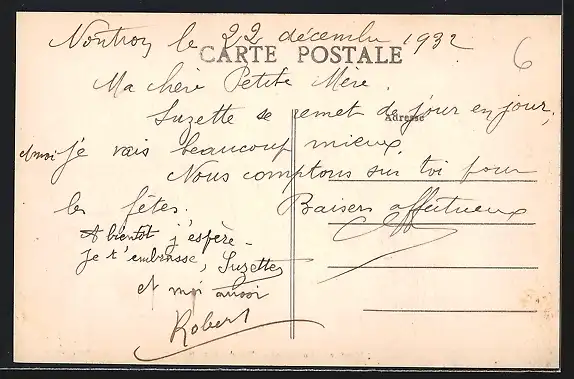 Nontron le 22 décembre 1932
6
CARTE POSTALE
Ma chère Petite Mère.
Suzette se remet de jour en jour,
Adresse
et moi je vais beaucoup mieux.
Nous comptons sur toi pour
les fêtes. Baisers affectueux
A bientôt j'espère -
Je t'embrasse, Suzette
et moi aussi
Robert